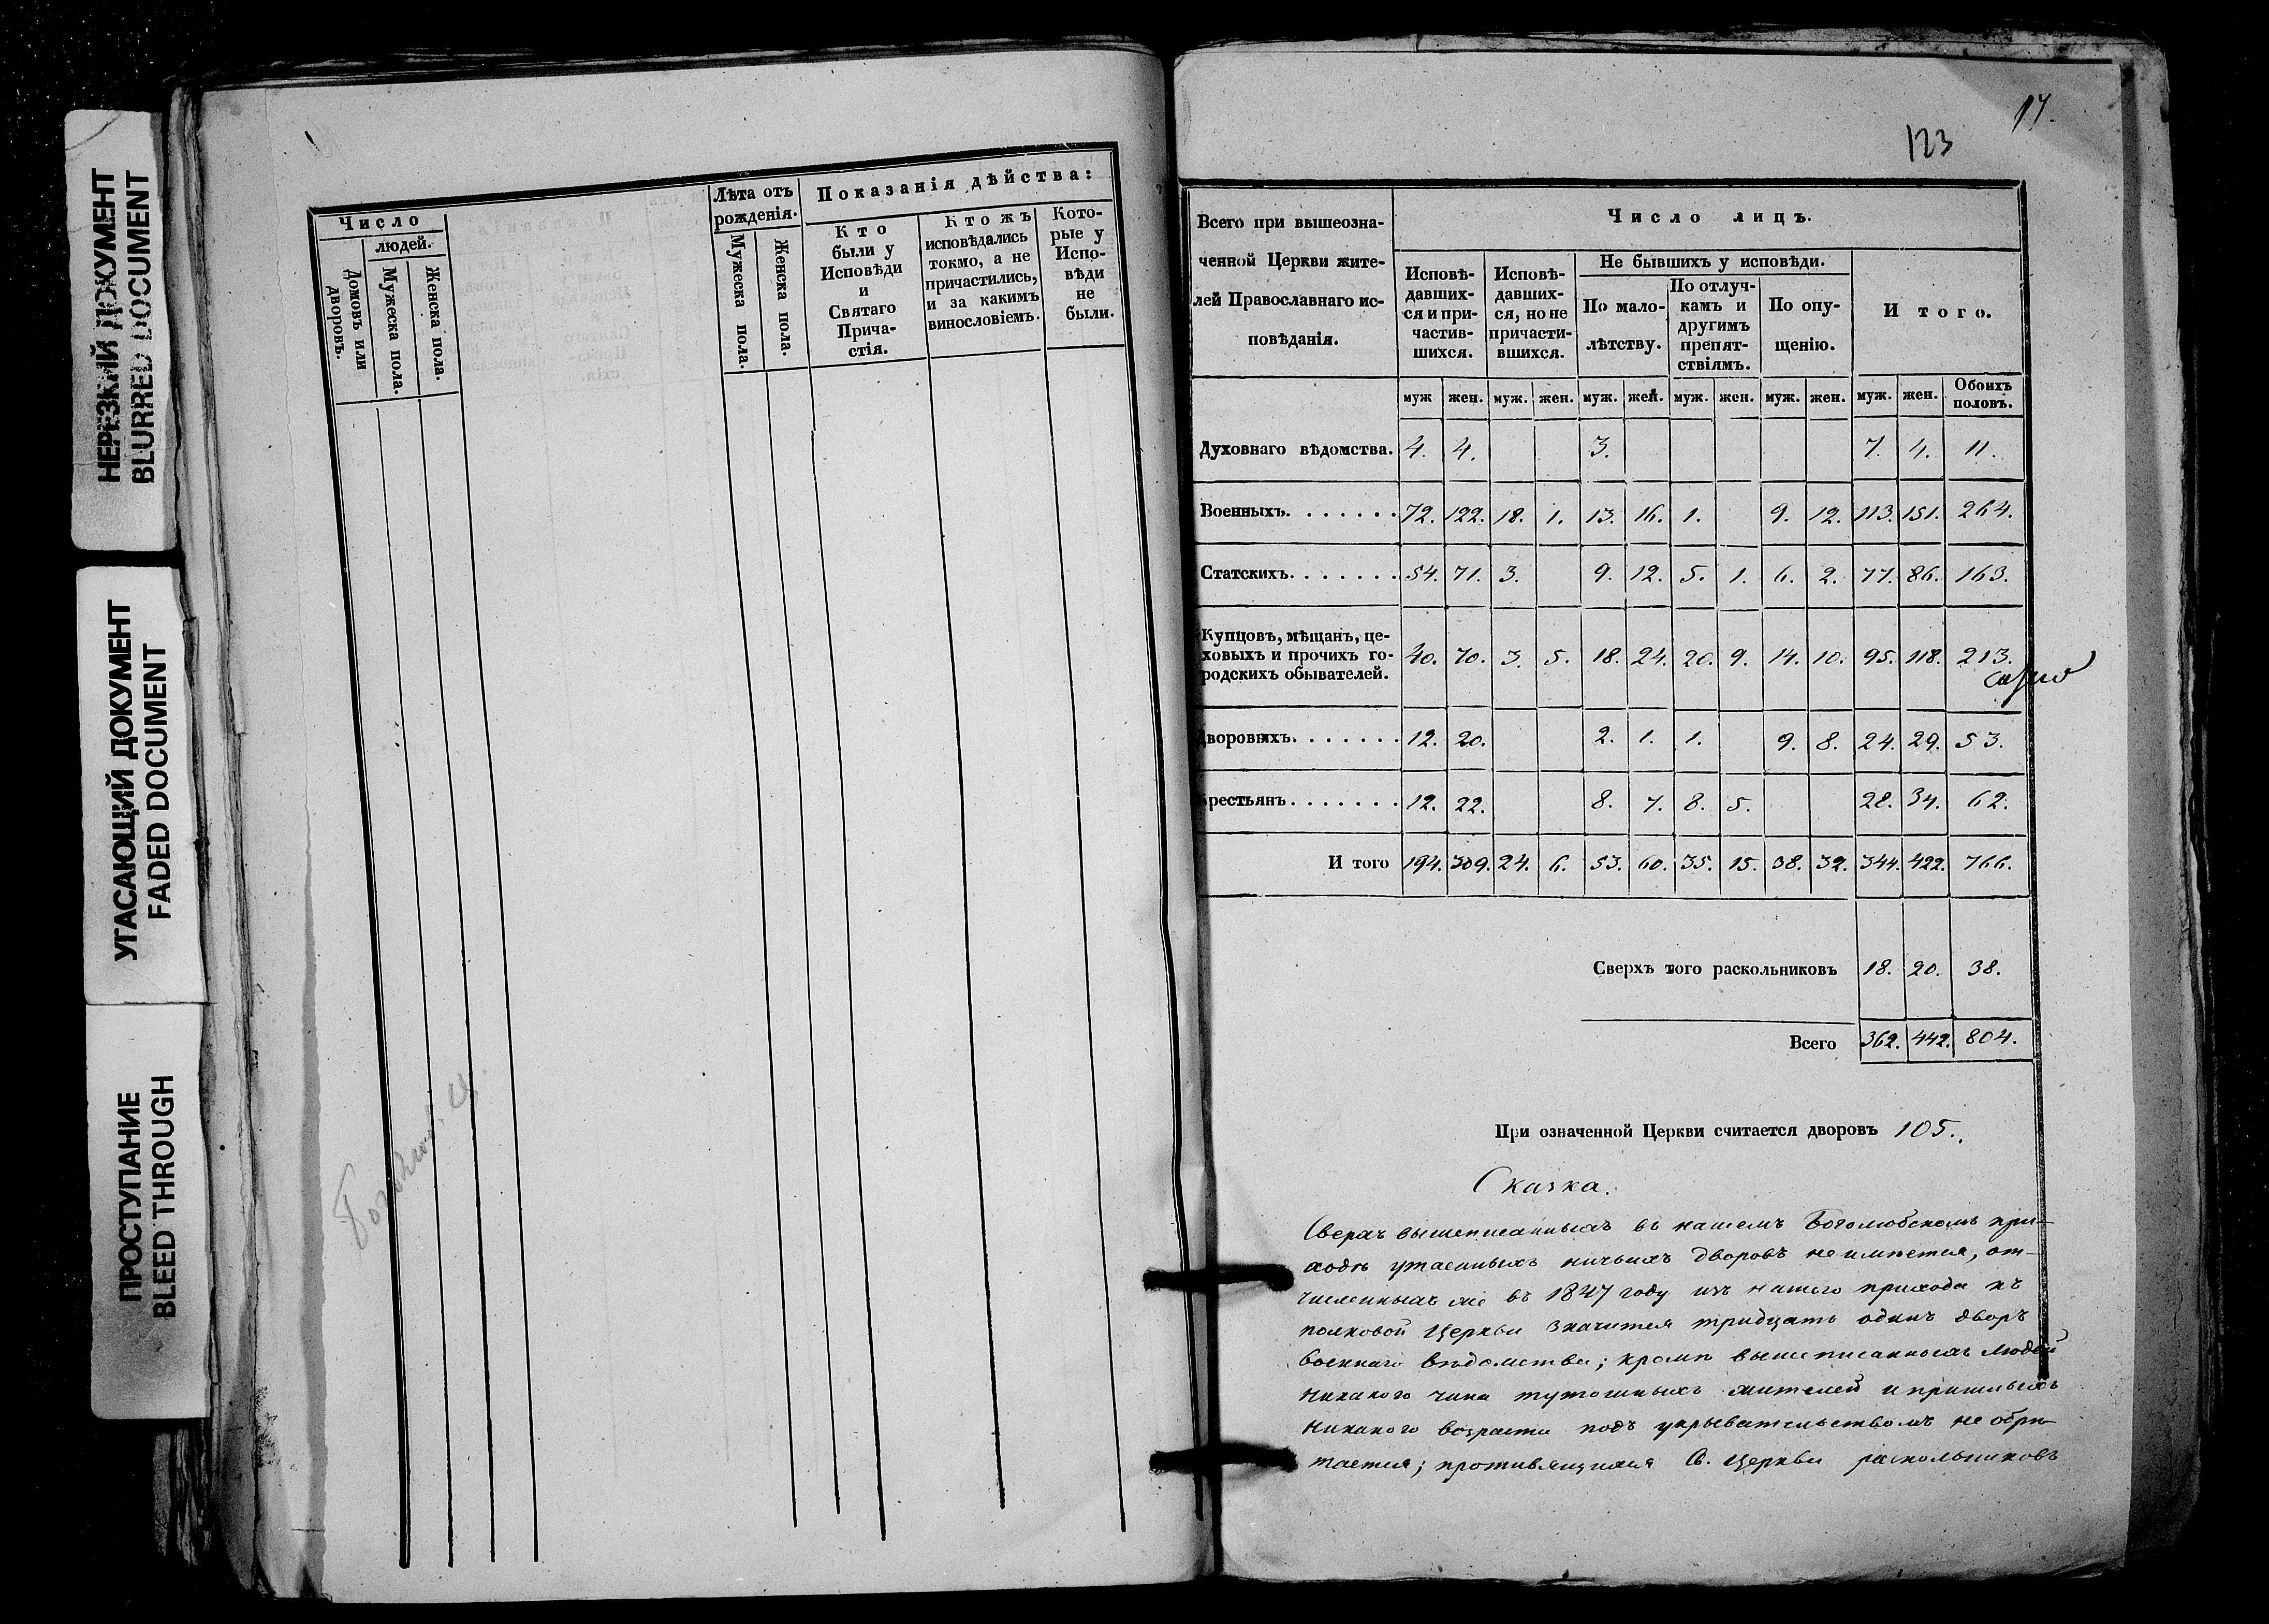 НЕРЕЗКИЙ ДОКУМЕНТ
BLURRED DOCUMENT
УГАСАЮЩИЙ ДОКУМЕНТ
FADED DOCUMENT
ПРОСТУПАНИЕ
BLEED THROUGH
Число
людей.
Домовъ или дворовъ.
Мужеска пола.
Женска пола.
Лѣта отъ рожденія.
Мужеска пола.
Женска пола.
Показанія дѣйства:
Кто были у Исповѣди и Святаго Причастія.
Кто жъ исповѣдались токмо, а не причастились, и за какимъ винословіемъ.
Которые у Исповѣди не были.
17.
123
Всего при вышеозна-
ченной Церкви жите-
лей Православнаго ис-
повѣданія.
Число лицъ.
Исповѣ-
давших-
ся и при-
частив-
шихся.
Исповѣ-
давших-
ся, но не
причасти-
вшихся.
Не бывшихъ у исповѣди.
По мало-
лѣтству.
По отлуч-
камъ и
другимъ
препят-
ствіямъ.
По опу-
щенію.
И того.
муж жен. муж. жен. муж. жен. муж. жен. муж. жен. муж. жен. Обоихъ половъ.
Духовнаго вѣдомства. 4. 4. 3. 7. 4. 11.
Военныхъ. . . . . . . 72. 122. 18. 1. 13. 16. 1. 9. 12. 113. 151. 264.
Статскихъ. . . . . . . 54. 71. 3. 9. 12. 5. 1. 6. 2. 77. 86. 163.
Купцовъ, мѣщанъ, це-
ховыхъ и прочихъ го-
родскихъ обывателей. 40. 70. 3. 5. 18. 24. 20. 9. 14. 10. 95. 118. 213.
Дворовыхъ. . . . . . . 12. 20. 2. 1. 1. 9. 8. 24. 29. 53.
рестьянъ. . . . . . . 12. 22. 8. 7. 8. 5. 28. 34. 62.
И того 194. 309. 24. 6. 53. 60. 35. 15. 38. 32. 344. 422. 766.
Сверхъ того раскольниковъ 18. 20. 38.
Всего 362. 442. 804.
При означенной Церкви считается дворовъ 105.
Сказка.
Сверхъ вышеписанныхъ въ нашемъ Боголюбскомъ при-
ходѣ утаенныхъ ничьихъ дворовъ не имѣется, от-
численныхъ же въ 1847 году изъ нашего прихода къ
полковой Церкви значится тридцать одинъ дворъ
военнаго вѣдомства; кромѣ вышеписанныхъ людей
никакого чина тутошныхъ жителей и пришлыхъ
никакого возраста подъ укрывательствомъ не обрѣ-
тается; противящихся Св. Церкви раскольниковъ